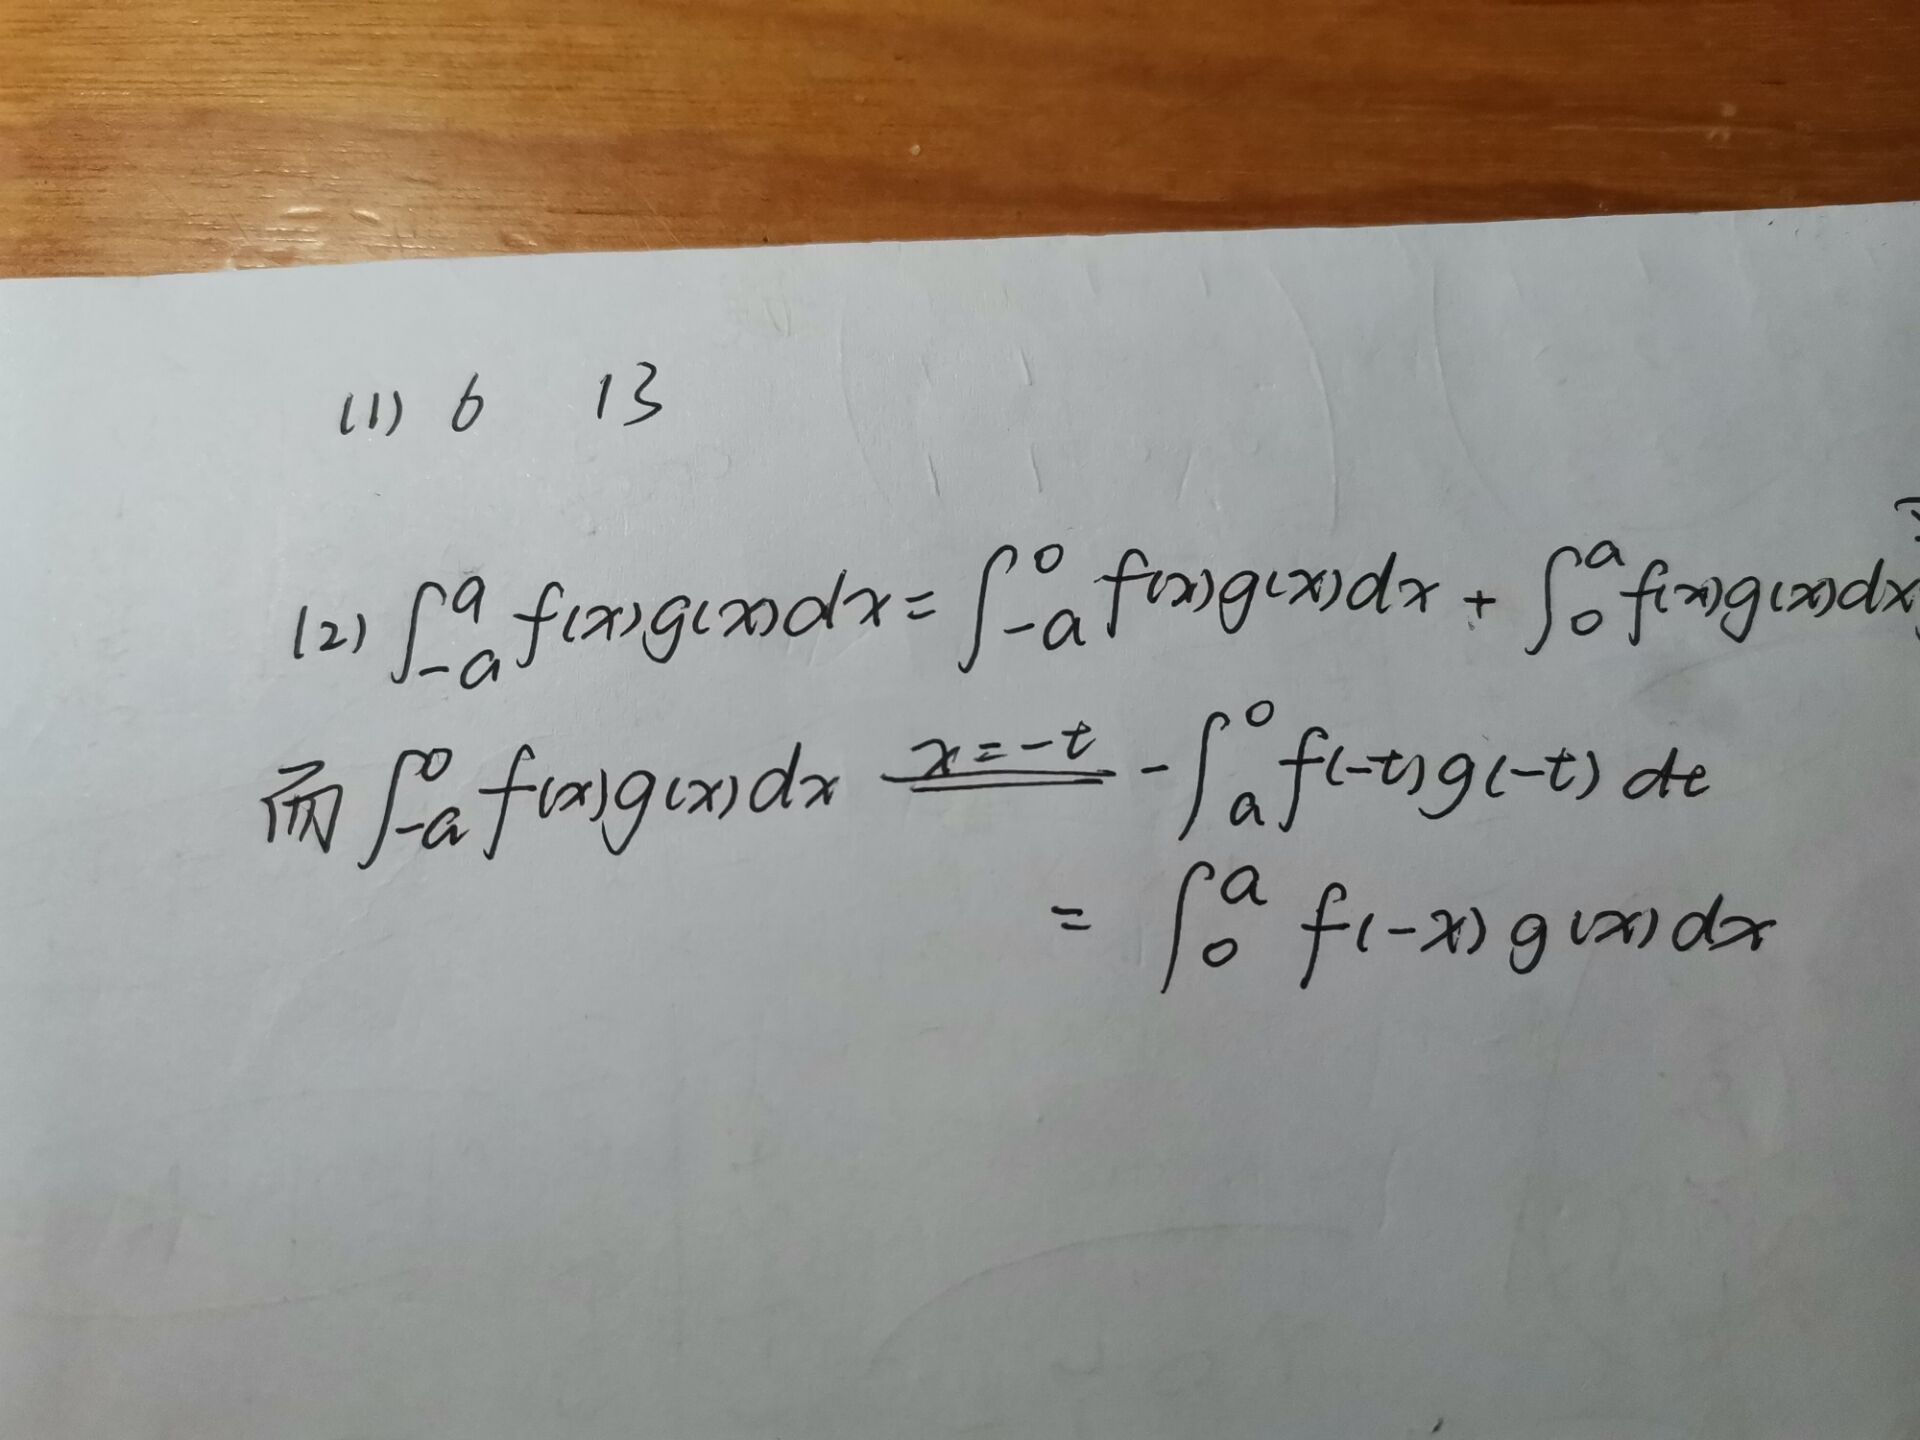 (1) 6 13
(2) ∫_{-a}^{a} f(x)g(x)dx = ∫_{-a}^{0} f(x)g(x)dx + ∫_{0}^{a} f(x)g(x)dx
而 ∫_{-a}^{0} f(x)g(x)dx \xlongequal{x=-t} -∫_{a}^{0} f(-t)g(-t) dt
= ∫_{0}^{a} f(-x)g(x)dx